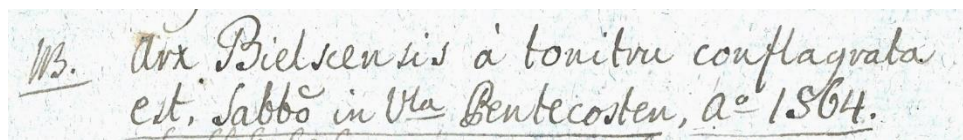 NB. Arx Bielscensis à tonitru conflagrata
est, Sabbō in Vla Pentecosten, aō 1564.